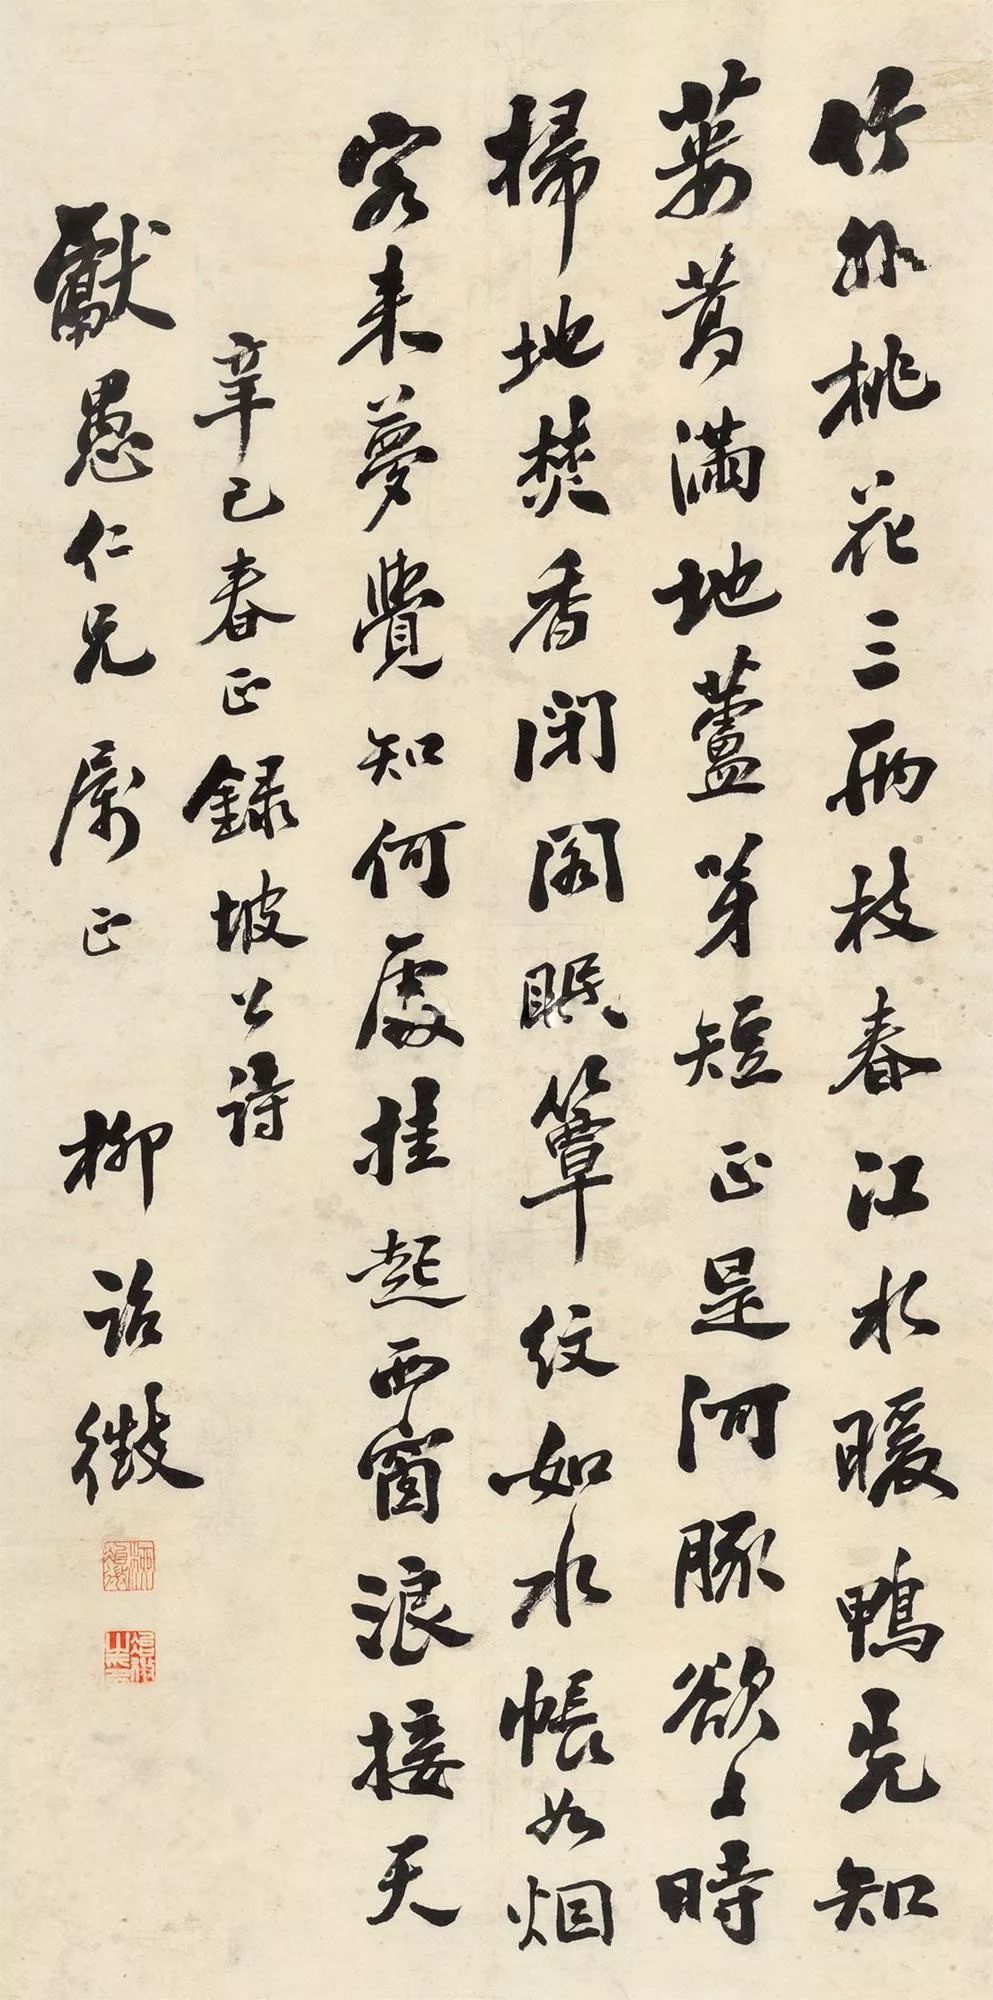 竹外桃花三兩枝春江水暖鴨先知
蔞蒿滿地蘆芽短正是河豚欲上時
掃地焚香閉閣眠簟紋如水帳如烟
客来夢覺知何處挂起西窗浪接天
辛巳春正錄坡公詩
獻愚仁兄屬正 柳詒徵